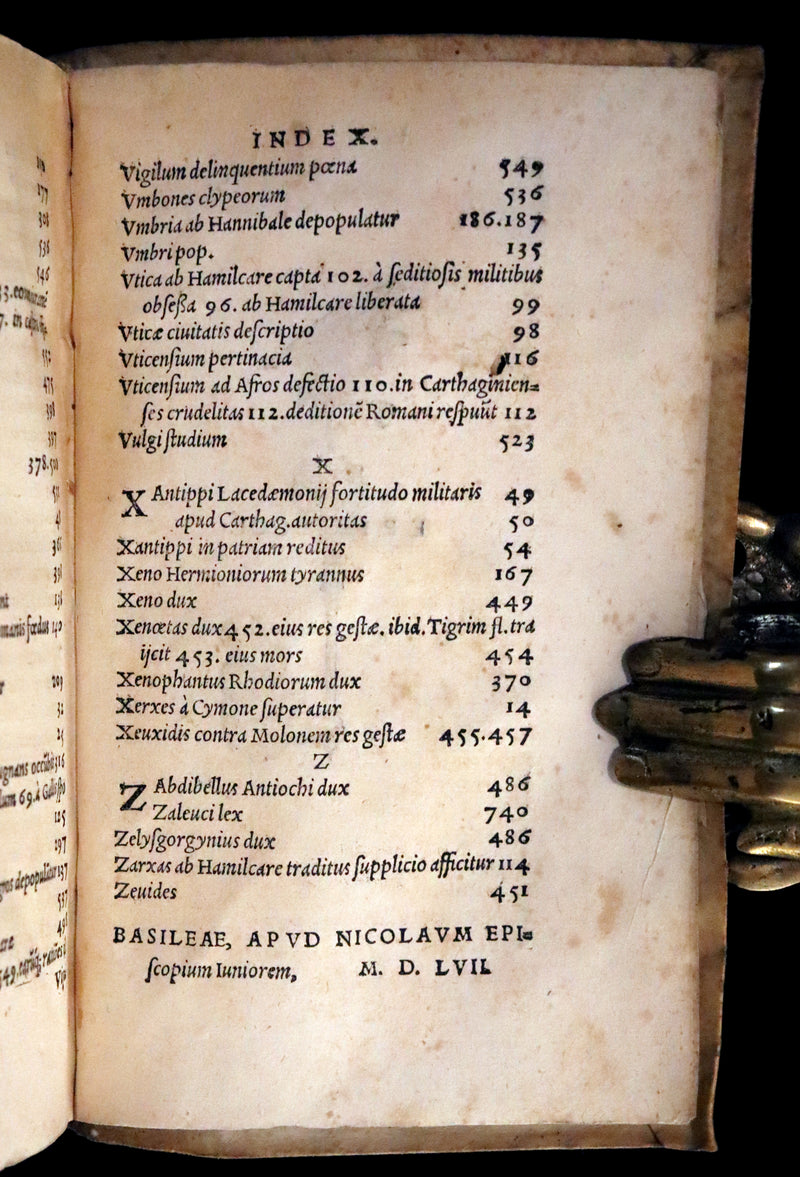 INDEX.
Vigilum delinquentium pœna 549
Vmbones clypeorum 536
Vmbria ab Hannibale depopulatur 186.187
Vmbri pop. 135
Vtica ab Hamilcare capta 102. à ſeditioſis militibus
obſeſſa 96. ab Hamilcare liberata 99
Vticæ ciuitatis deſcriptio 98
Vticenſium pertinacia 116
Vticenſium ad Afros defectio 110. in Carthaginien=
ſes crudelitas 112. deditionē Romani reſpuūt 112
Vulgi ſtudium 523
X
XAntippi Lacedæmonij fortitudo militaris 49
apud Carthag. autoritas 50
Xantippi in patriam reditus 54
Xeno Hermioniorum tyrannus 167
Xeno dux 449
Xenœtas dux 452. eius res geſtæ. ibid. Tigrim fl. tra
ijcit 453. eius mors 454
Xenophantus Rhodiorum dux 370
Xerxes à Cymone ſuperatur 14
Xeuxidis contra Molonem res geſtæ 455.457
Z
ZAbdibellus Antiochi dux 486
Zaleuci lex 740
Zelyſgorgynius dux 486
Zarxas ab Hamilcare traditus ſupplicio afficitur 114
Zeuides 451
BASILEAE, APVD NICOLAVM EPI=
ſcopium Iuniorem, M. D. LVII.